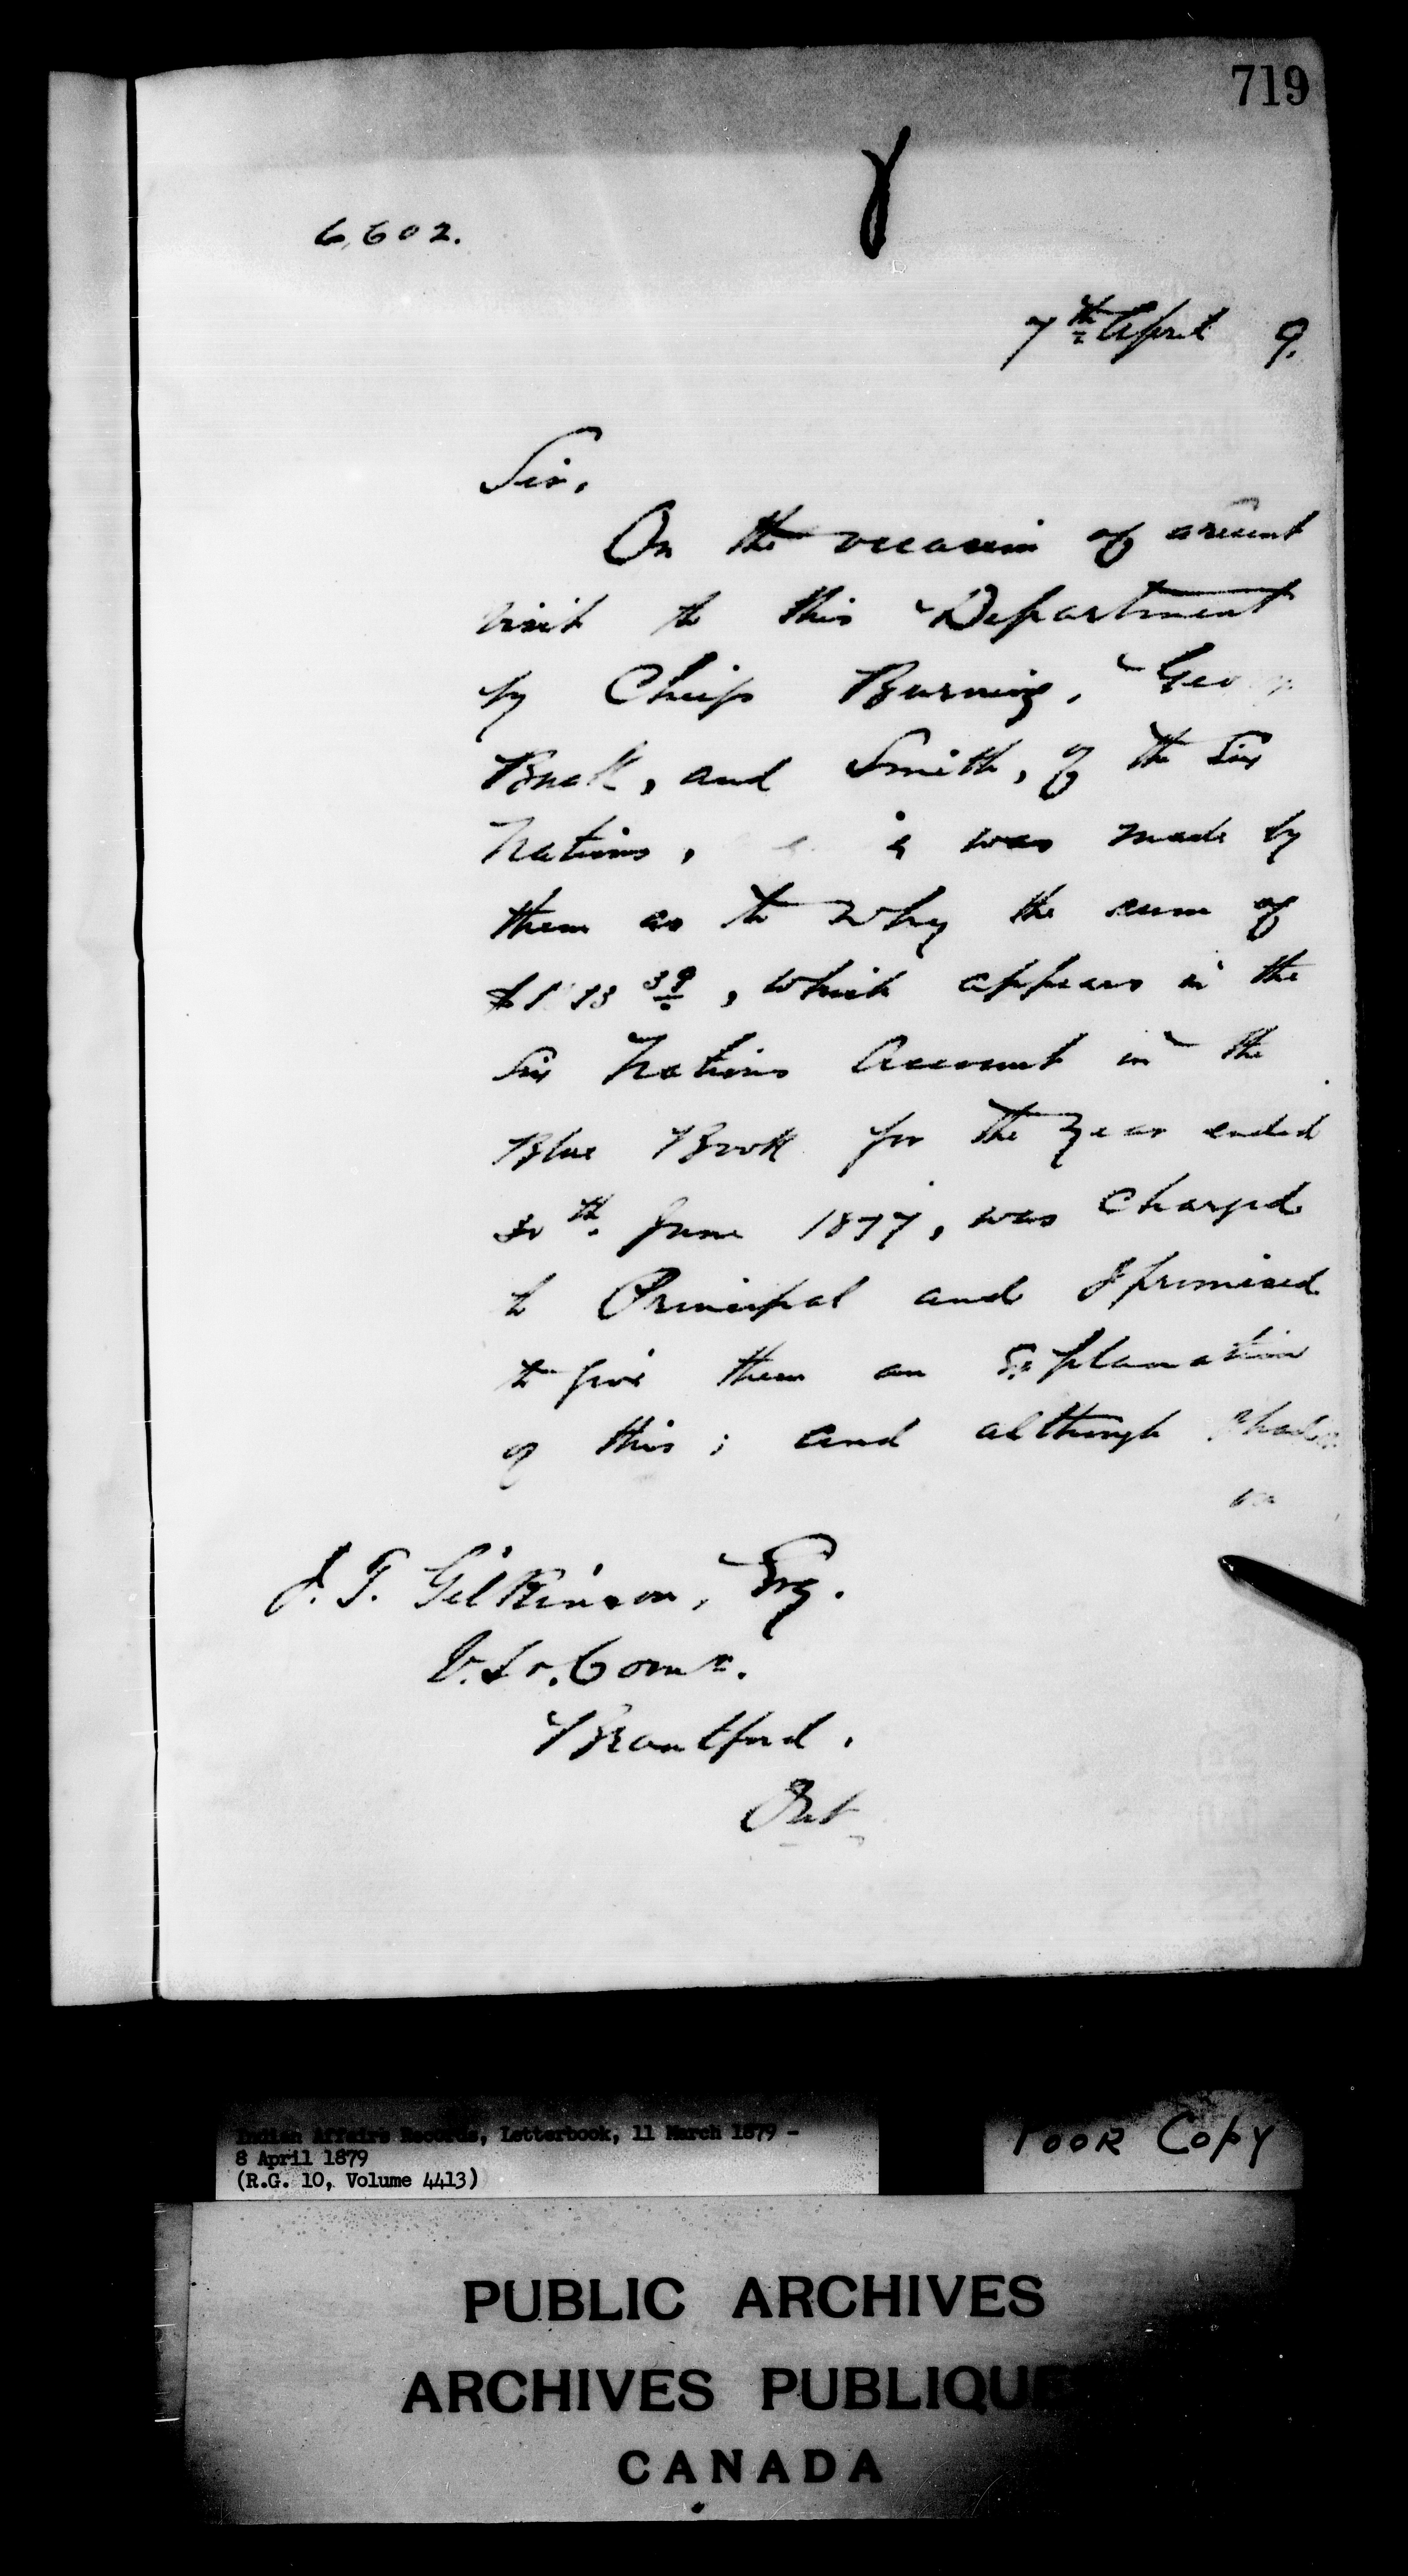 719
6,602.
7th April 9.
Sir,
On the occasion of a recent
visit to this Department
by Chiefs Burning,
Buck, and Smith, of the Six
Nations, was made by
them as to why the sum of
which appears in the
Six Nations Account in the
Blue Book for the year ended
30th June 1877, was charged
to Principal and I promised
to give them an Explanation
of this; and although
J. T. Gilkinson, Esq.
V. Sr. Comr.
Brantford.
Ont.
Indian Affairs Records, Letterbook, 11 March 1879 -
8 April 1879
(R.G. 10, Volume 4413)
Poor Copy
PUBLIC ARCHIVES
ARCHIVES PUBLIQUE
CANADA